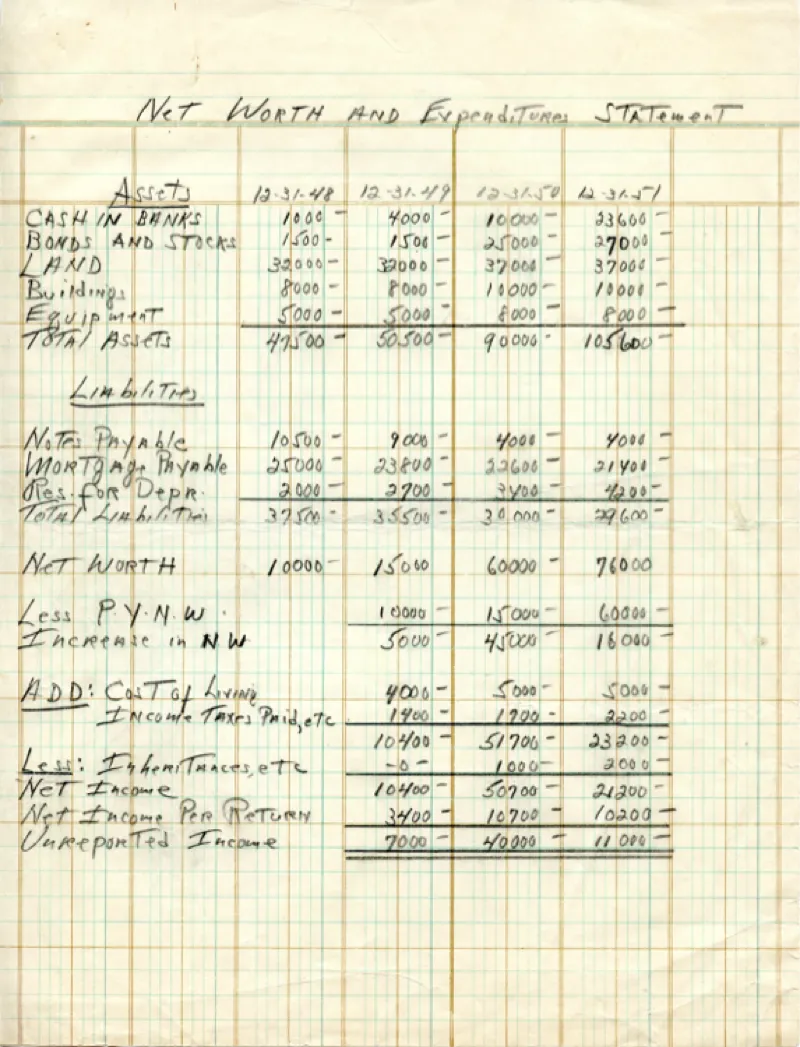 Net Worth and Expenditures Statement
Assets 12-31-48 12-31-49 12-31-50 12-31-51
Cash in Banks 1000- 4000- 10000- 23600-
Bonds and Stocks 1500- 1500- 25000- 27000-
Land 32000- 32000- 37000- 37000-
Buildings 8000- 8000- 10000- 10000-
Equipment 5000- 5000- 8000- 8000-
Total Assets 47500- 50500- 90000- 105600-
Liabilities
Notes Payable 10500- 9000- 4000- 4000-
Mortgage Payable 25000- 23800- 22600- 21400-
Res. for Depr. 2000- 2700- 3400- 4200-
Total Liabilities 37500- 35500- 30000- 29600-
Net Worth 10000- 15000 60000- 76000
Less P.Y.N.W. 10000- 15000- 60000-
Increase in NW 5000- 45000- 16000-
ADD: Cost of Living 4000- 5000- 5000-
Income Taxes Paid, etc 1400- 1700- 2200-
10400- 51700- 23200-
Less: Inheritances, etc -0- 1000- 2000-
Net Income 10400- 50700- 21200-
Net Income Per Return 3400- 10700- 10200-
Unreeported Income 7000- 40000- 11000-